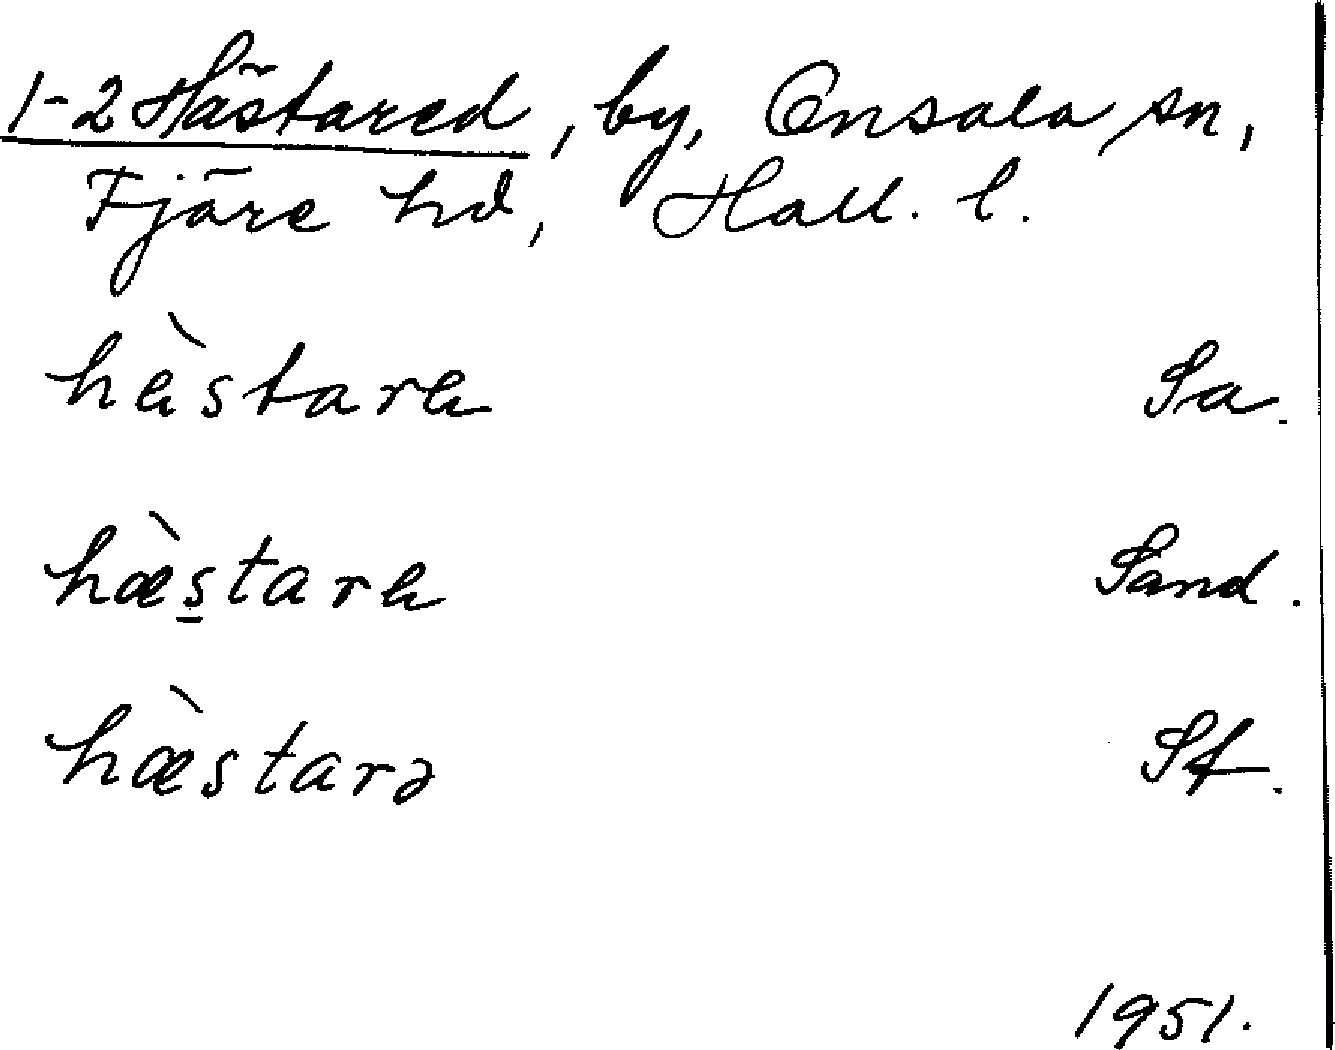 1-2 Hästared, by, Onsala sn,
Fjäre hd, Hall. l.
hὲstarɛ Sa.
hæ̀s̱tarɛ Sand.
hæ̀starə Sf.
1951.